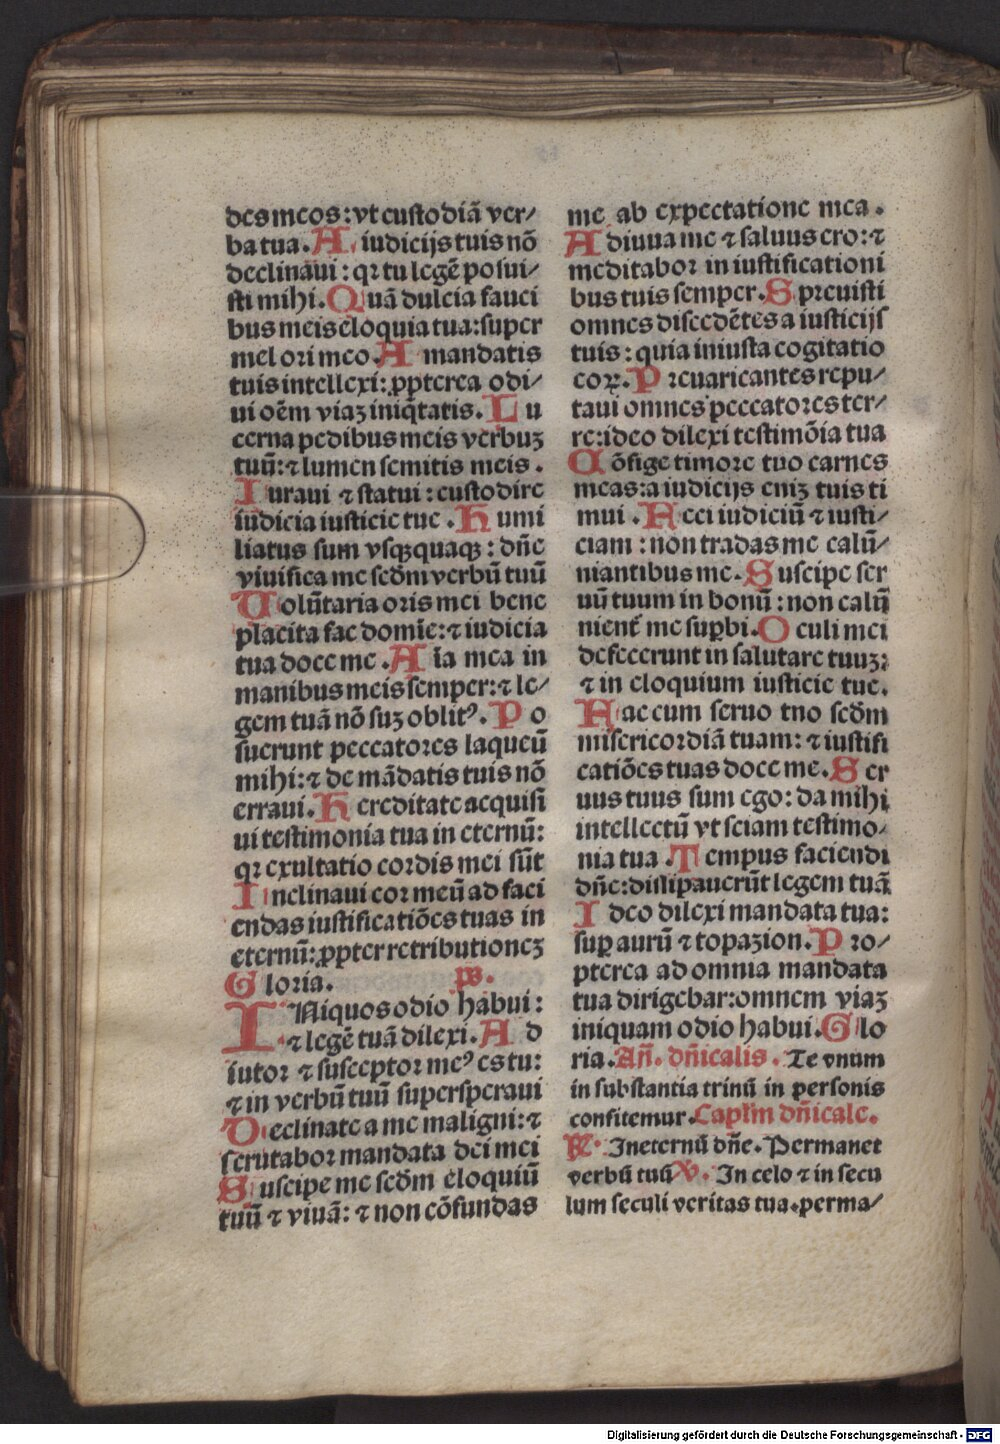 des meos: vt custodiā ver/
ba tua. A iudicijs tuis nō
declinaui: qꝛ tu legē posui/
sti mihi. Quā dulcia fauci
bus meis eloquia tua: super
mel ori meo. A mandatis
tuis intellexi: ꝓpterea odi/
ui oēm viaꝫ iniq̄tatis. Lu
cerna pedibus meis verbuꝫ
tuū: ⁊ lumen semitis meis.
Iuraui ⁊ statui: custodire
iudicia iusticie tue. Humi
liatus sum vsqꝫquaqꝫ: dn̄e
viuifica me scd̄m verbū tuū
Uolūtaria oris mei bene
placita fac domīe: ⁊ iudicia
tua doce me. Aīa mea in
manibus meis semper: ⁊ le/
gem tuā nō suꝫ oblitꝰ. Po
suerunt peccatores laqueū
mihi: ⁊ de mādatis tuis nō
erraui. Hereditate acquisi
ui testimonia tua in eternū:
qꝛ exultatio cordis mei sūt
Inclinaui cor meū ad faci
endas iustificatiōes tuas in
eternū: ꝓpter retributioneꝫ
Gloria. ps.
INiquos odio habui:
⁊ legē tuā dilexi. Ad
iutor ⁊ susceptor meꝰ es tu:
⁊ in verbū tuū supersperaui
Declinate a me maligni: ⁊
scrutabor mandata dei mei
Suscipe me scd̄m eloquiū
tuū ⁊ viuā: ⁊ non cōfundas
me ab expectatione mea.
Adiuua me ⁊ saluus ero: ⁊
meditabor in iustificationi
bus tuis semper. Spreuisti
omnes discedētes a iusticijs
tuis: quia iniusta cogitatio
eoꝝ. Preuaricantes repu/
taui omnes peccatores ter/
re: ideo dilexi testimōia tua
Cōfige timore tuo carnes
meas: a iudicijs eniꝫ tuis ti
mui. Feci iudiciū ⁊ iusti/
ciam: non tradas me calū/
niantibus me. Suscipe ser
uū tuum in bonū: non calū
nient᷑ me suꝑbi. Oculi mei
defecerunt in salutare tuuꝫ:
⁊ in eloquium iusticie tue.
Fac cum seruo tuo scd̄m
misericordiā tuam: ⁊ iustifi
catiōes tuas doce me. Ser
uus tuus sum ego: da mihi
intellectū vt sciam testimo/
nia tua. Tempus faciendi
dn̄e: dissipauerūt legem tuā
Ideo dilexi mandata tua:
suꝑ aurū ⁊ topazion. Pro/
pterea ad omnia mandata
tua dirigebar: omnem viaꝫ
iniquam odio habui. Glo
ria. Añ. dn̄icalis. Te vnum
in substantia trinū in personis
confitemur. Capl̄m dn̄icale.
℟. In eternū dn̄e. Permanet
verbū tuū ℣. In celo ⁊ in secu
lum seculi veritas tua. perma/
Digitalisierung gefördert durch die Deutsche Forschungsgemeinschaft - DFG